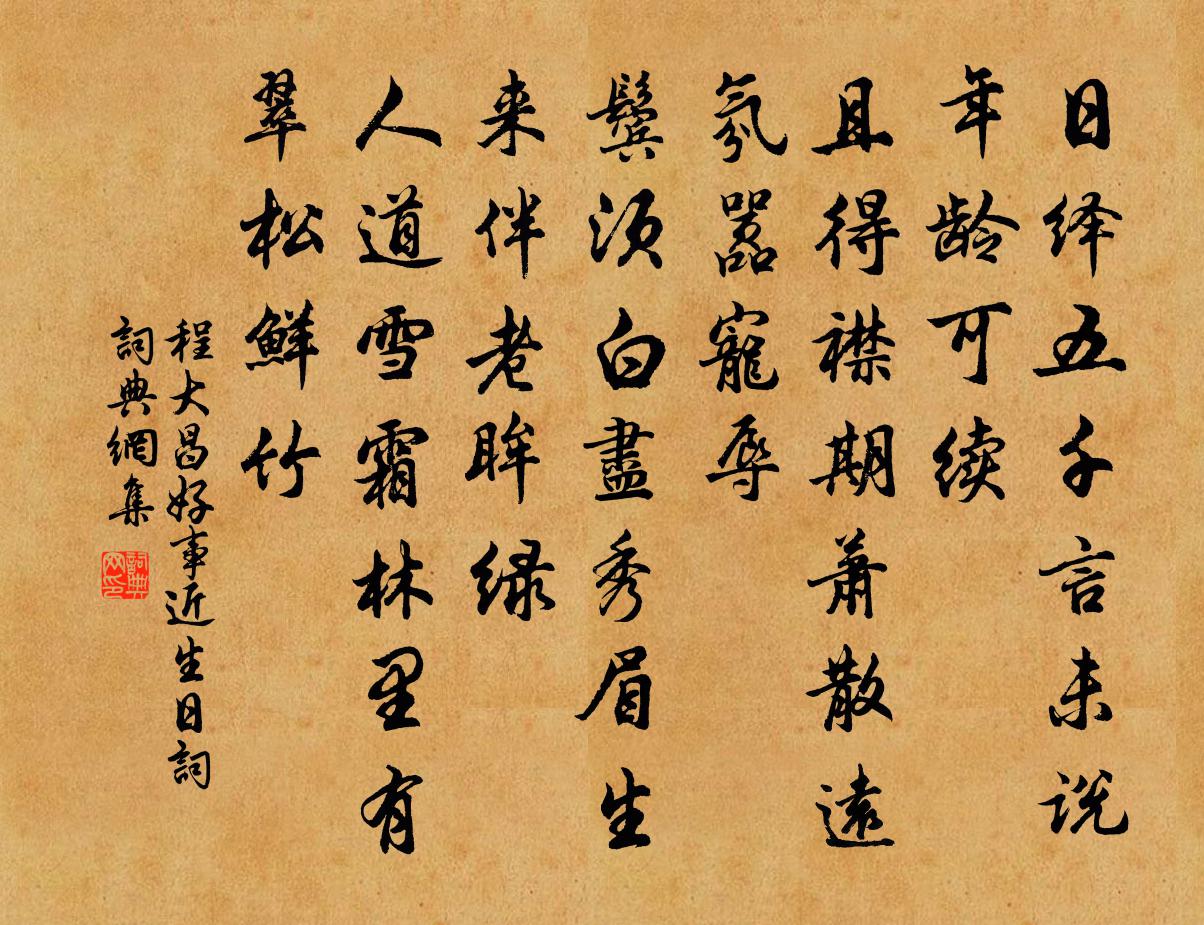 日绎五千言未说
年龄可续
且得襟期萧散遠
氛嚣寵辱
鬓须白盡秀眉生
来伴老眸绿
人道雪霜林里有
翠松鮮竹
程大昌好事近生日詞
詞典網集
詞典网印